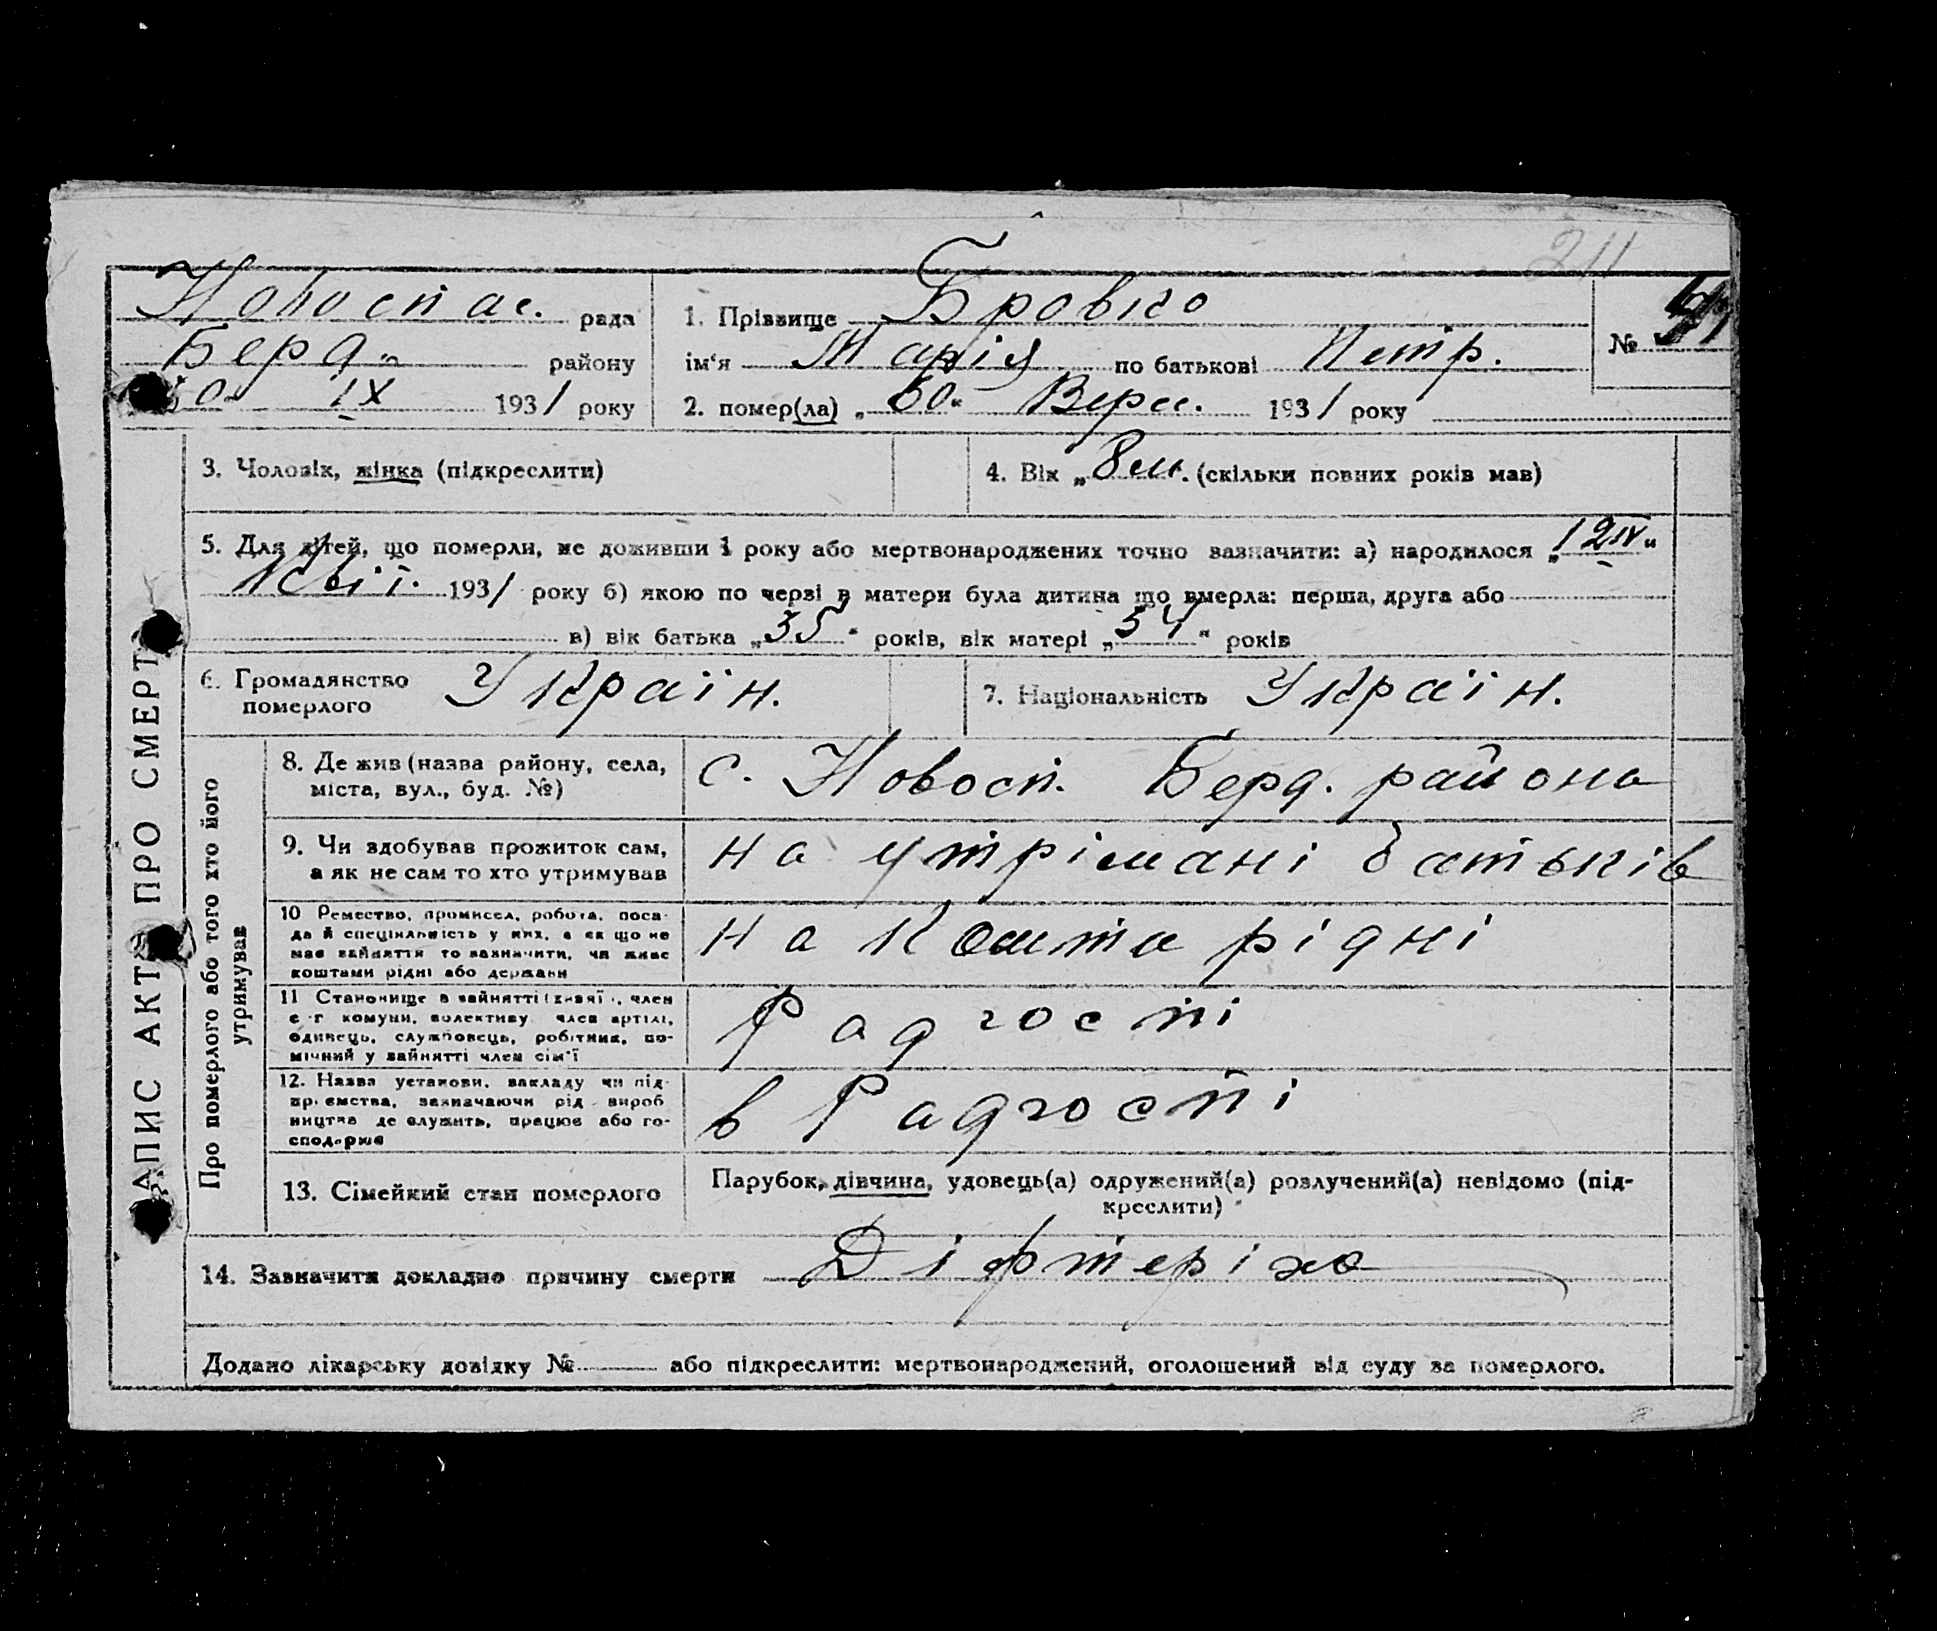 211
Новоспас. рада
Берд. району
30 IX 1931 року
1. Прізвище Бровко
ім'я Марія по батькові Петр.
2. помер(ла) „30" Верес. 1931 року
№
3. Чоловік, жінка (підкреслити)
4. Вік „8 м. (скільки повних років мав)
5. Для дітей, що померли, не доживши 1 року або мертвонароджених точно зазначити: а) народилося „12 IV"
1931 року б) якою по черзі в матери була дитина що вмерла: перша, друга або
в) вік батька „35" років, вік матері „34" років
6. Громадянство
померлого Україн.
7. Національність Україн.
ЗАПИС АКТУ ПРО СМЕРТЬ
Про померлого або того хто його
утримував
8. Де жив (назва району, села,
міста, вул., буд. №)
с. Новосп. Берд. району
9. Чи здобував прожиток сам,
а як не сам то хто утримував
на утрімані батьків
10 Ремество, промисел, робота, поса-
да й спеціяльність у них, а як що не
має зайняття то зазначити, чи живе
коштами рідні або держави
на кошта рідні
11 Становище в зайнятті (хазяї , член
с-г комуни, колективу, член артілі,
одинець, службовець, робітник, по-
мічний у зайнятті член сім'ї
Радгоспі
12. Назва установи, закладу чи під-
приємства, зазначаючи рід вироб
ництва де служить, працює або го-
сподарює
в Радгоспі
13. Сімейний стан померлого
Парубок, дівчина, удовець(а) одружений(а) розлучений(а) невідомо (під-
креслити)
14. Зазначити докладно причину смерти Діфтеріха
Додано лікарську довідку № або підкреслити: мертвонароджений, оголошений від суду за померлого.